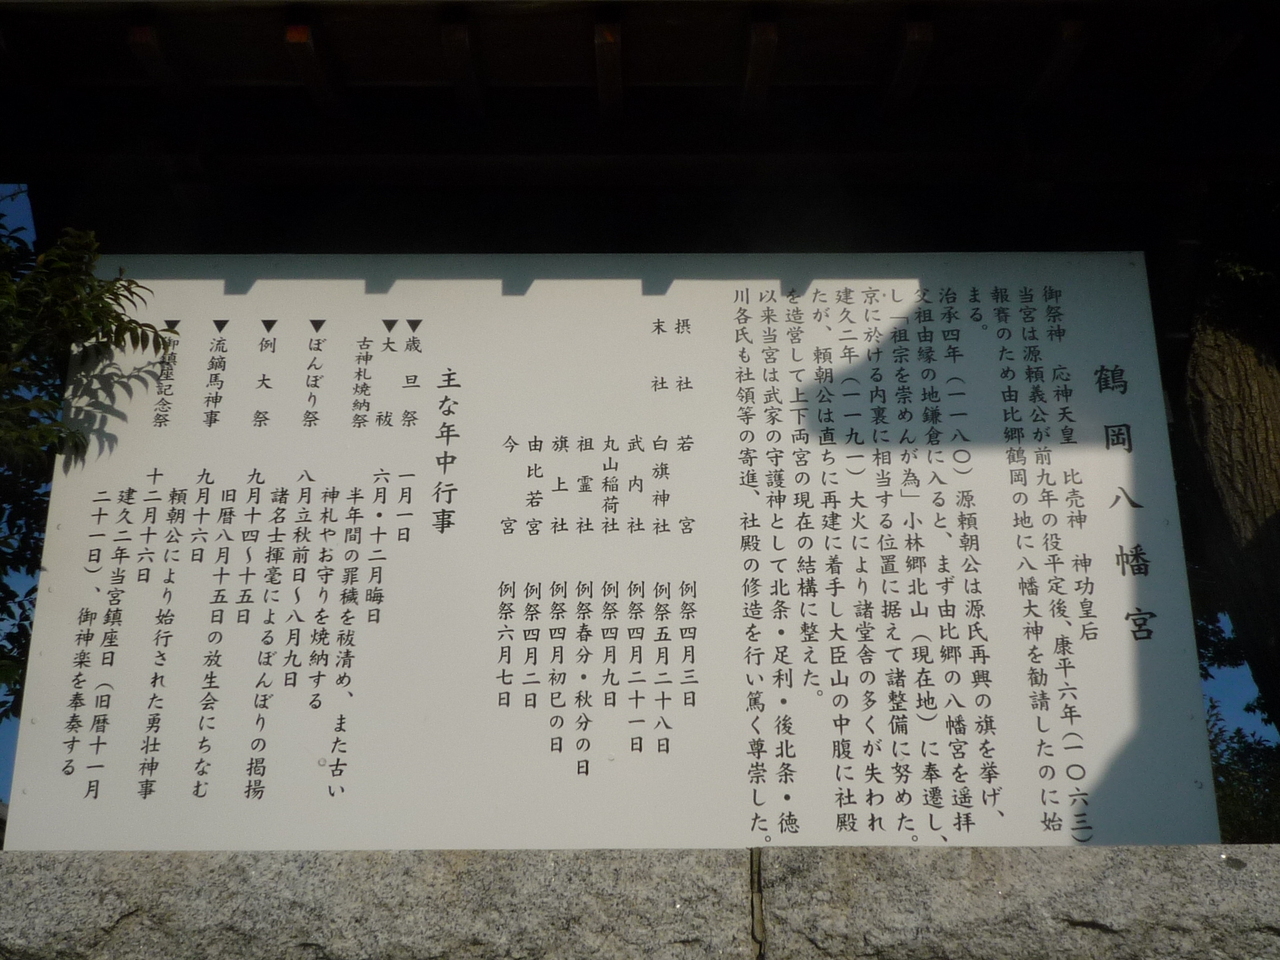 鶴岡八幡宮
御祭神 応神天皇 比売神 神功皇后
当宮は源頼義公が前九年の役平定後、康平六年(一〇六三)
報賽のため由比郷鶴岡の地に八幡大神を勧請したのに始
まる。
治承四年(一一八〇)源頼朝公は源氏再興の旗を挙げ、
父祖由縁の地鎌倉に入ると、まず由比郷の八幡宮を遥拝
し「祖宗を崇めんが為」小林郷北山(現在地)に奉遷し、
京に於ける内裏に相当する位置に据えて諸整備に努めた。
建久二年(一一九一)大火により諸堂舎の多くが失われ
たが、頼朝公は直ちに再建に着手し大臣山の中腹に社殿
を造営して上下両宮の現在の結構に整えた。
以来当宮は武家の守護神として北条・足利・後北条・徳
川各氏も社領等の寄進、社殿の修造を行い篤く尊崇した。
摂社 若宮 例祭四月三日
末社 白旗神社 例祭五月二十八日
武内社 例祭四月二十一日
丸山稲荷社 例祭四月九日
祖霊社 例祭春分・秋分の日
旗上社 例祭四月初巳の日
由比若宮 例祭四月二日
今宮 例祭六月七日
主な年中行事
▼歳旦祭 一月一日
▼大祓 六月・十二月晦日
古神札焼納祭 半年間の罪穢を祓清め、また古い
神札やお守りを焼納する
▼ぼんぼり祭 八月立秋前日〜八月九日
諸名士揮毫によるぼんぼりの掲揚
▼例大祭 九月十四〜十五日
旧暦八月十五日の放生会にちなむ
▼流鏑馬神事 九月十六日
頼朝公により始行された勇壮神事
▼御鎮座記念祭 十二月十六日
建久二年当宮鎮座日(旧暦十一月
二十一日)、御神楽を奉奏する